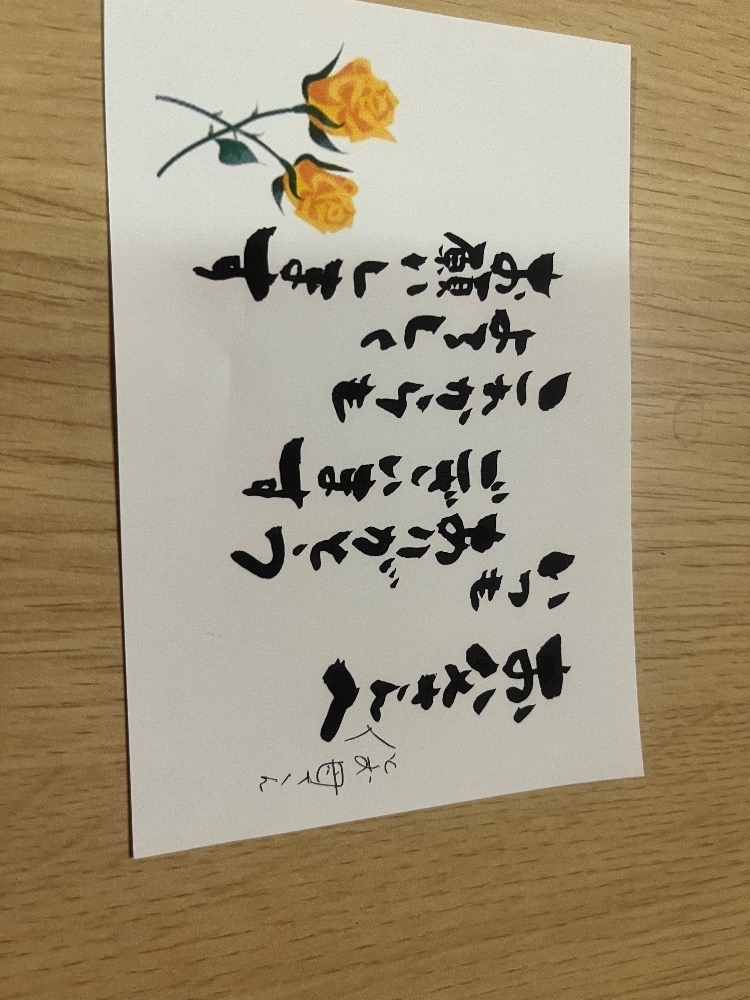 お父さんへ
とお母さん
いつも
ありがとう
ございます
これからも
よろしく
お願いします